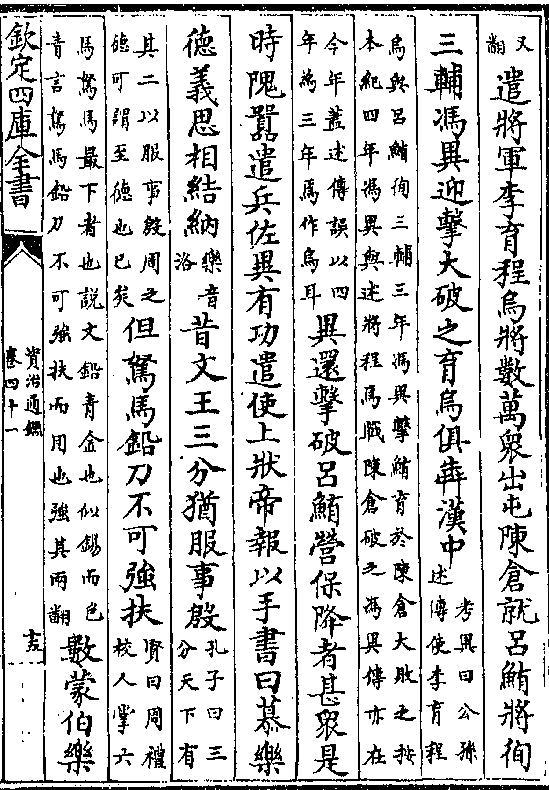 又翻遣將軍李育程烏將數萬衆出屯陳倉就呂鮪將徇
三輔馮異迎擊大破之育烏俱犇漢中考異曰公孫述傳使李育程
烏與呂鮪徇三輔三年馮異擊鮪育於陳倉大敗之按本紀四年馮異與述將程焉戰陳倉破之馮異傳亦在
今年蓋述傳誤以四年為三年焉作烏耳異還擊破呂鮪營保降者甚衆是
時隗囂遣兵佐異有功遣使上狀帝報以手書曰慕樂
德義思相結納樂音洛昔文王三分猶服事殷孔子曰三分天下有
其二以服事殷周之德可謂至德也已矣但駑馬鉛刀不可強扶賢曰周禮校人掌六
馬駑馬最下者也說文鉛青金也似錫而色青言駑馬鉛刀不可強扶而用也強其兩翻數蒙伯樂
欽定四庫全書
資治通鑑
卷四十一